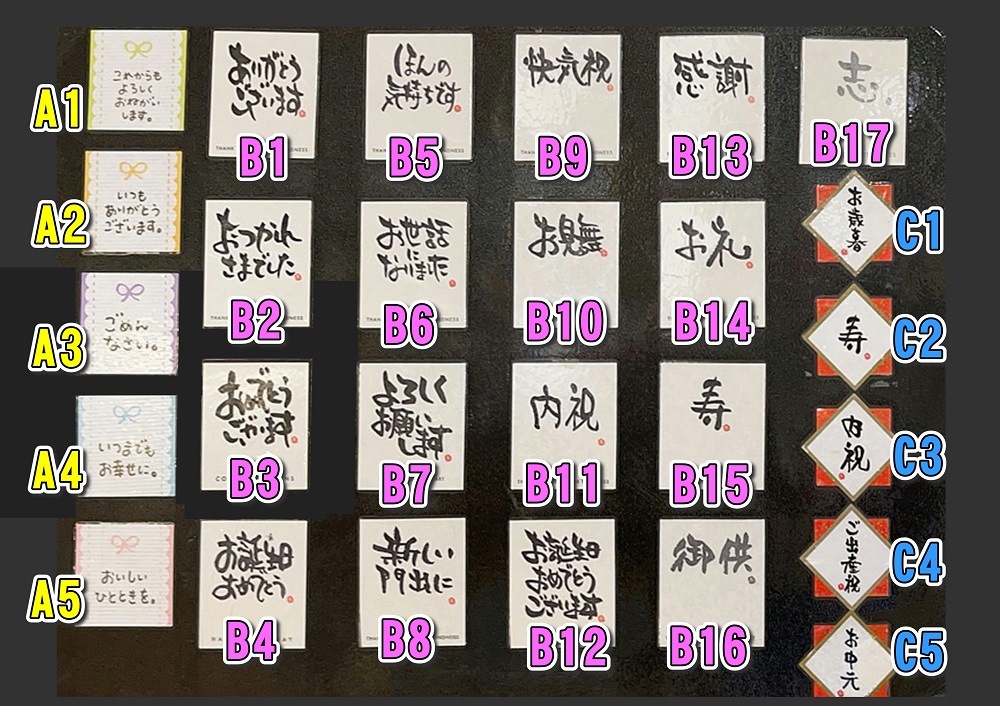 これからも
よろしく
おねがい
します。
A1
いつも
ありがとう
ございます。
A2
ごめん
なさい。
A3
いつまでも
お幸せに。
A4
おいしい
ひとときを。
A5
ありがとう
ございます
B1
おつかれ
さまでした
B2
おめでとう
ございます
B3
お誕生日
おめでとう
B4
ほんの
気持ちです
B5
お世話
になりました
B6
よろしく
お願いします
B7
新しい
門出に
B8
快気祝
B9
お見舞
B10
内祝
B11
お誕生日
おめでとう
ございます
B12
感謝
B13
お礼
B14
寿
B15
御供
B16
志
B17
お歳暮
C1
寿
C2
内祝
C3
ご出産祝
C4
お中元
C5